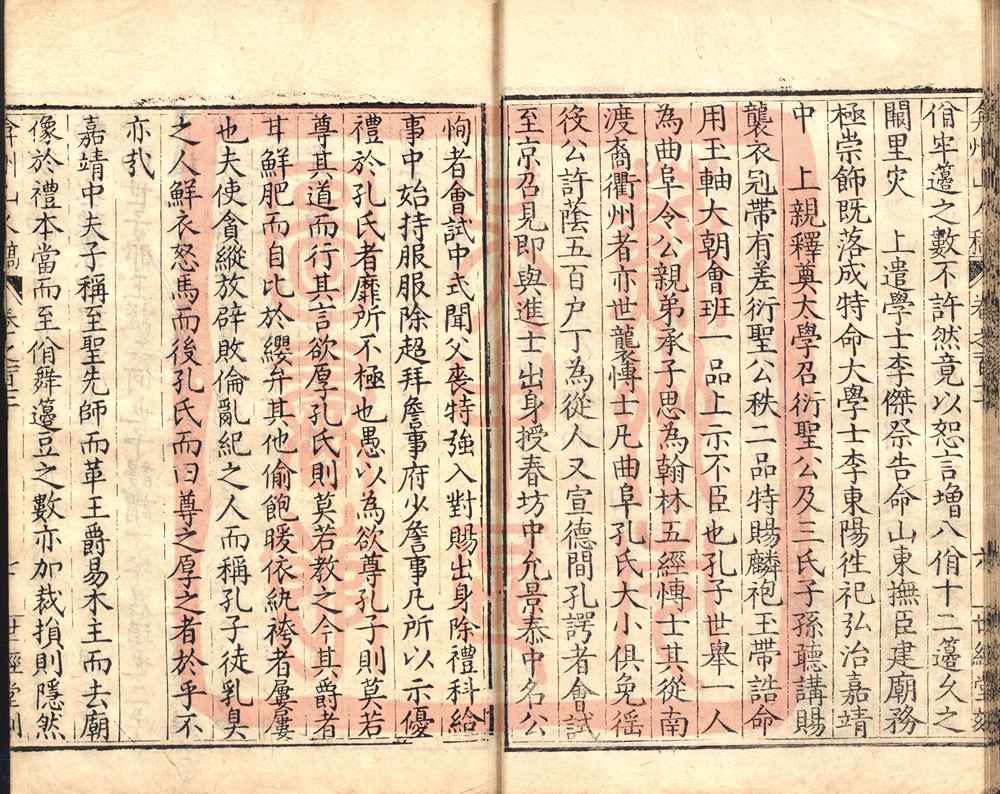 佾牢籩之數不許然竟以恕言增八佾十二籩久之
闕里灾　上遣學士李傑祭告命山東撫臣建廟務
極崇飾既落成特命大學士李東陽徃祀弘治嘉靖
中　上親釋奠太學召衍聖公及三氏子孫聽講賜
襲衣冠帶有差衍聖公秩二品特賜麟袍玉帶誥命
用玉軸大朝會班一品上示不臣也孔子世舉一人
為曲阜令公親弟承子思為翰林五經博士其從南
渡裔衢州者亦世襲博士凡曲阜孔氏大小俱免徭
後公許蔭五百户丁為從人又宣德間孔諤者會試
至京召見即與進士出身授春坊中允景泰中名公
恂者會試中式聞父喪特強入對賜出身除禮科給
事中始持服服除超拜詹事府少詹事凡所以示優
禮於孔氏者靡所不極也愚以為欲尊孔子則莫若
尊其道而行其言欲厚孔氏則莫若教之今其爵者
甘鮮肥而自比於纓弁其他偷飽暖依紈袴者屢屢
也夫使貪縱放辟敗倫亂紀之人而稱孔子徒乳臭
之人鮮衣怒馬而後孔氏而曰尊之厚之者於乎不
亦㢤
嘉靖中夫子稱至聖先師而革王爵易木主而去廟
像於禮本當而至佾舞籩豆之數亦加裁損則隱然
弇州山人稿　卷之百　七　世經堂刻